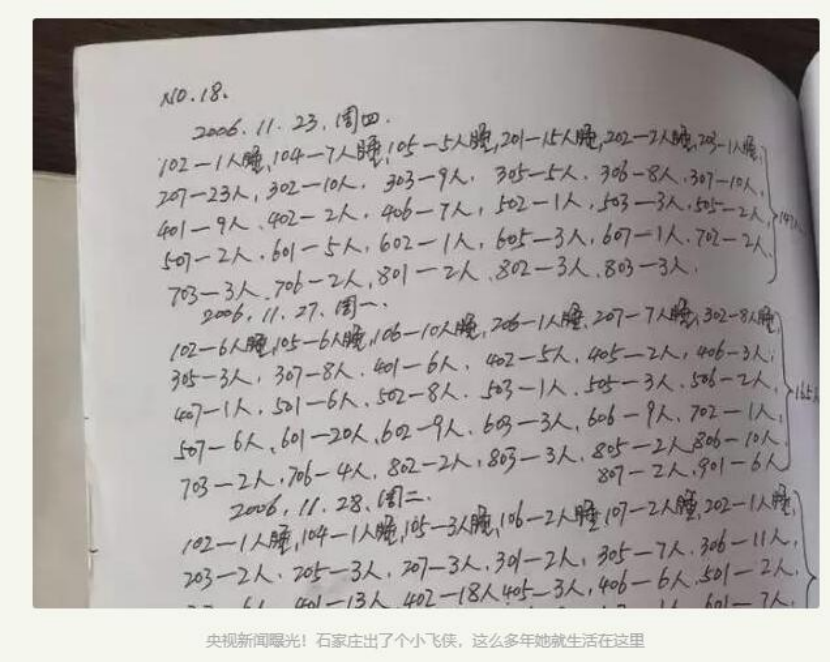 NO.18.
2006.11.23.周四.
102-1人睡,104-7人睡,105-5人睡,201-15人睡,202-2人睡,203-1人睡,
207-23人,302-10人.303-9人.305-5人.306-8人.307-10人,
401-9人.402-2人.406-7人,502-1人,503-3人.505-2人,
507-2人.601-5人,602-1人,605-3人,607-1人.702-2人.
703-3人.706-2人,801-2人.802-3人.803-3人.
2006.11.27.周一.
102-6人睡,105-6人睡,106-10人睡,206-1人睡.207-7人睡,302-8人睡,
305-3人,307-8人.401-6人.402-5人,405-2人,406-3人,
407-1人,501-6人.502-8人.503-1人.505-3人.506-2人,
507-6人,601-20人,602-9人.603-3人,606-9人.702-1人,
703-2人,706-4人,802-2人,803-3人.805-2人,806-10人.
807-2人.901-6人
2006.11.28.周二.
102-1人睡,104-1人睡,105-3人睡,106-2人睡,107-2人睡,202-1人睡,
203-2人.205-3人.207-3人.301-2人,305-7人.306-11人,
401-13人.402-18人405-3人,406-6人.501-2人,
央视新闻曝光！石家庄出了个小飞侠，这么多年她就生活在这里